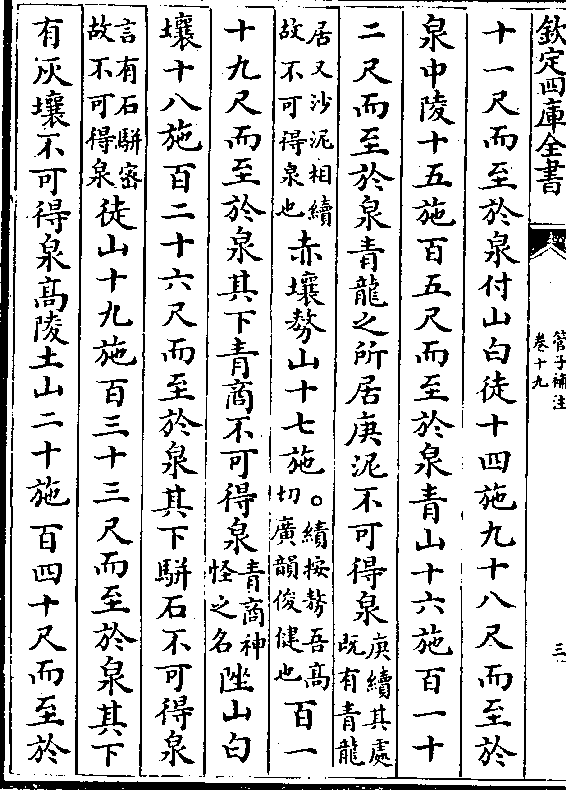 欽定四庫全書
管子補注
卷十九
三
十一尺而至於泉付山白徒十四施九十八尺而至於
泉中陵十五施百五尺而至於泉青山十六施百一十
二尺而至於泉青龍之所居庚泥不可得泉庚續其處既有青龍
居又沙泥相續故不可得泉也赤壤𠢕山十七施。續按𠢕吾高切廣韻俊健也百一
十九尺而至於泉其下青商不可得泉青商神怪之名䧙山白
壤十八施百二十六尺而至於泉其下駢石不可得泉
言有石駢密故不可得泉徒山十九施百三十三尺而至於泉其下
有灰壤不可得泉髙陵土山二十施百四十尺而至於